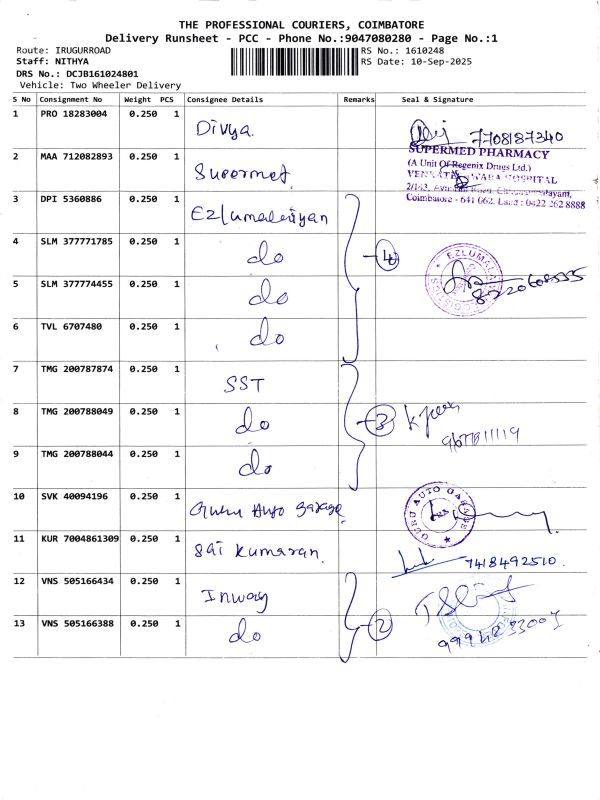 THE PROFESSIONAL COURIERS, COIMBATORE
Delivery Runsheet - PCC - Phone No.:9047080280 - Page No.:1
Route: IRUGURROAD
RS No.: 1610248
Staff: NITHYA
RS Date: 10-Sep-2025
DRS No.: DCJB161024801
Vehicle: Two Wheeler Delivery
S No Consignment No Weight PCS Consignee Details Remarks Seal & Signature
1 PRO 18283004 0.250 1 Divya 7708187340
2 MAA 712082893 0.250 1 Supermet
SUPERMED PHARMACY
(A Unit Of Regenix Drugs Ltd.)
HOSPITAL
Coimbatore - 641 062. Land : 0422 262 8888
3 DPI 5360886 0.250 1 Ezlumalaiyan
4 SLM 377771785 0.250 1 do 4
EZLUMALAI
5 SLM 377774455 0.250 1 do
6 TVL 6707480 0.250 1 do
7 TMG 200787874 0.250 1 SST
8 TMG 200788049 0.250 1 do 3
9 TMG 200788044 0.250 1 do
10 SVK 40094196 0.250 1 Guru Auto Garage
GURU AUTO GARAGE
11 KUR 7004861309 0.250 1 Sai Kumaran 7418492510
12 VNS 505166434 0.250 1 Inway
13 VNS 505166388 0.250 1 do 2